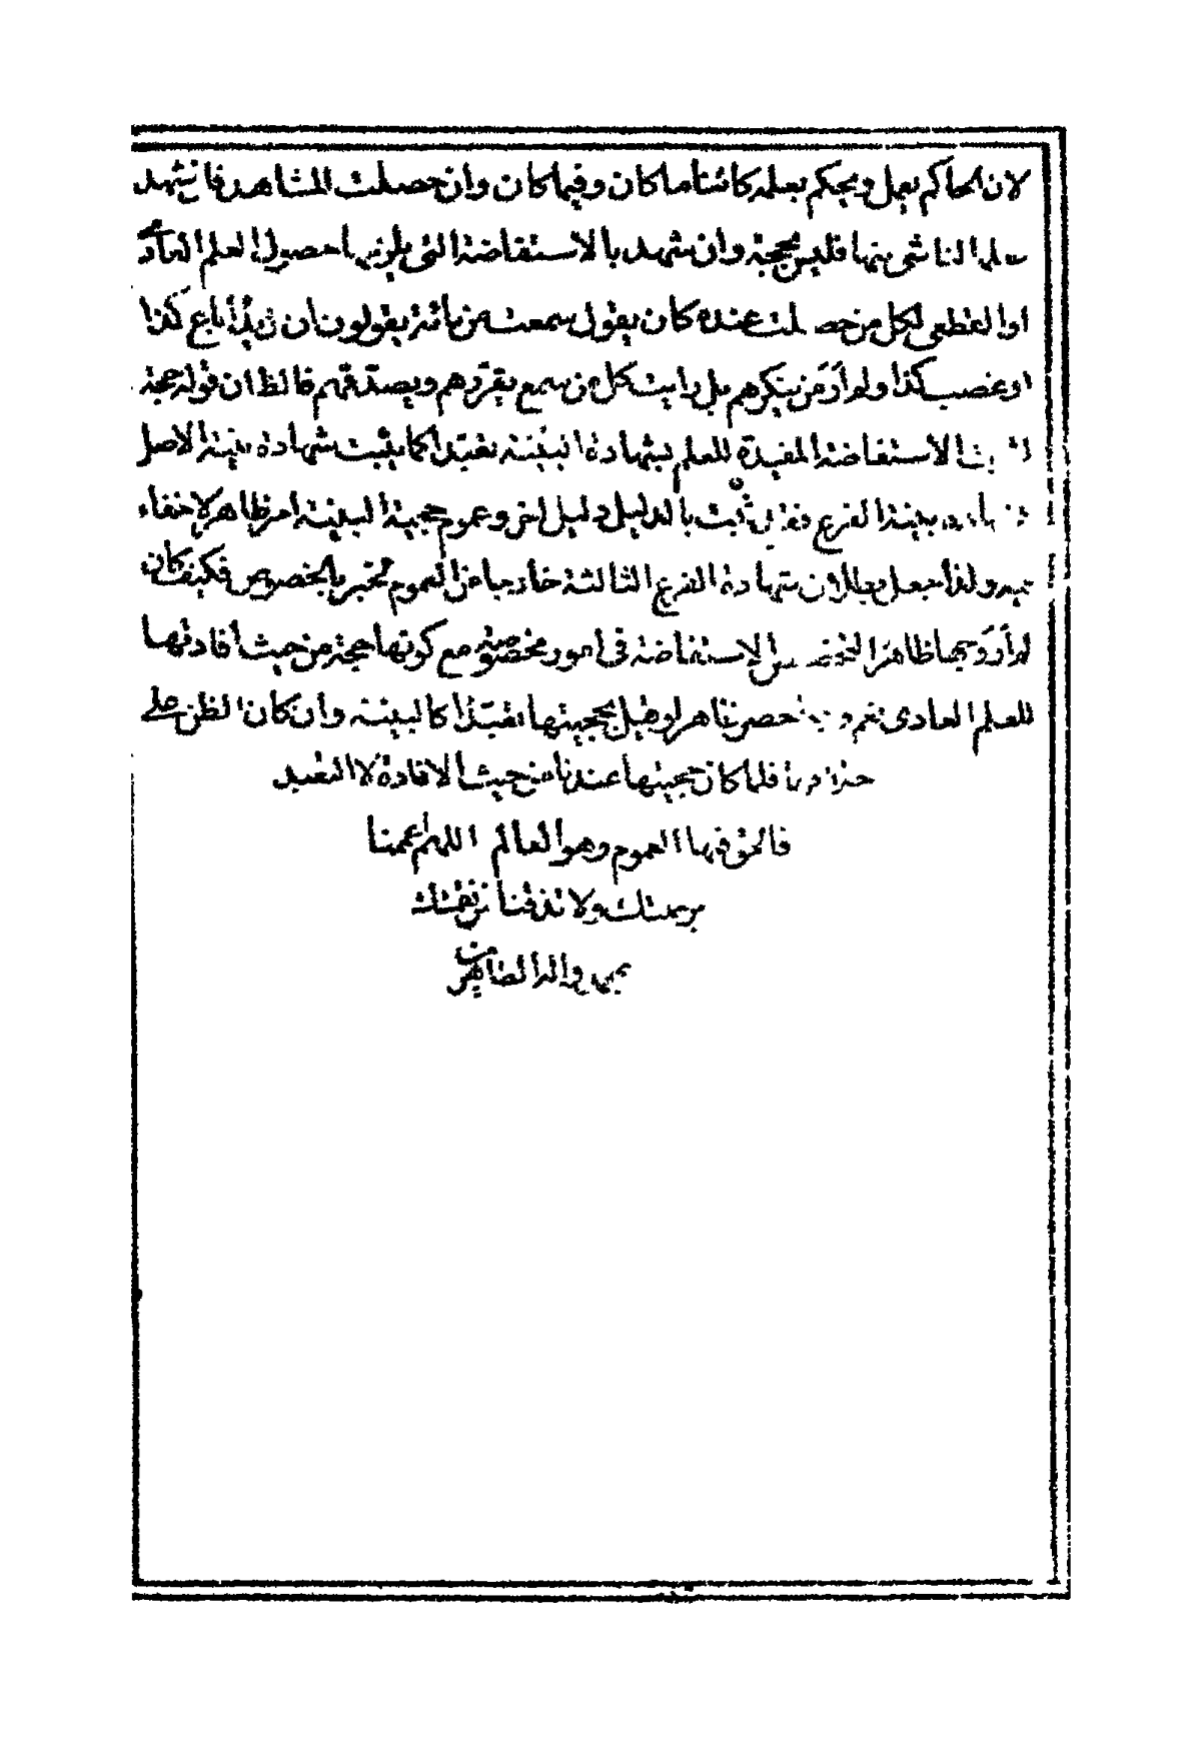 لان الحاكم يعمل ويحكم بعلمه كائنا ما كان وفيما كان وان حصلت المشاهد فان شهد
الناشى منها فليس بحجية وان شهد بالاستفاضة التى يلزمها حصول العلم العادى
او القطعى لكل من حصلت عنده كان يقول سمعت من مائة يقولون ان زيدا باع كذا
او غصب كذا ولم ار من ينكرهم بل رايت كل من سمع يقررهم ويصدقهم فالظ ان قوله حجة
الاستفاضة المفيدة للعلم بشهادة البينة تعبدا كما يثبت شهادة بينة الاصل
بينة الفرع فقد ثبت بالدليل دليل اخر وعموم حجية البينة امر ظاهر لا خفاء
فيه ولذا جعل بطلان شهادة الفرع الثالثة خارجا عن العموم مختبر بالخصوص فكيف كان
لم ار وجها ظاهرا الاستفاضة فى امور مخصوصة مع كونها حجة من حيث افادتها
للعلم العادى نعم حصر ظاهر لو قيل بحجيتها تعبدا كالبينة وان كان الظن على
فلما كان حجيتها عندنا من حيث الافادة لا التعبد
فالحق فيها العموم وهو العالم اللهم عمنا
برحمتك ولا تذقنا من نقمتك
واله الطاهرين